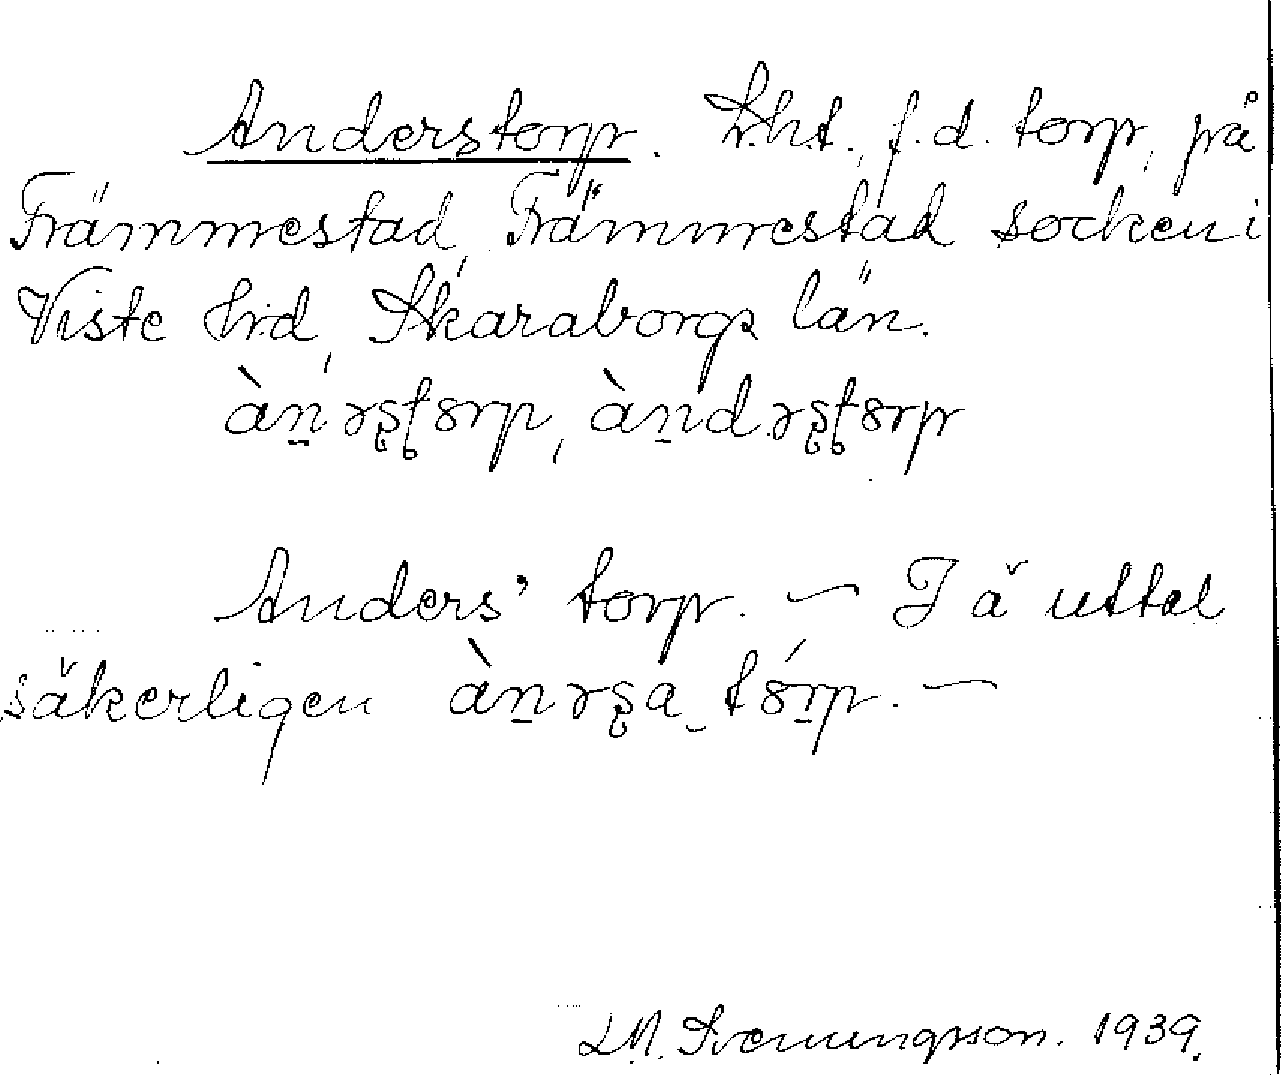 Anderstorp. Lht, f.d. torp, på
Främmestad, Främmestad socken i
Viste hd, Skaraborgs län.
àn̠əʂʈɞrp, àn̠dəʂʈɞrp
Anders' torp. — I ä uttal
säkerligen àn̠əʂa tɞ́r̠p. —
Svenungsson. 1939.